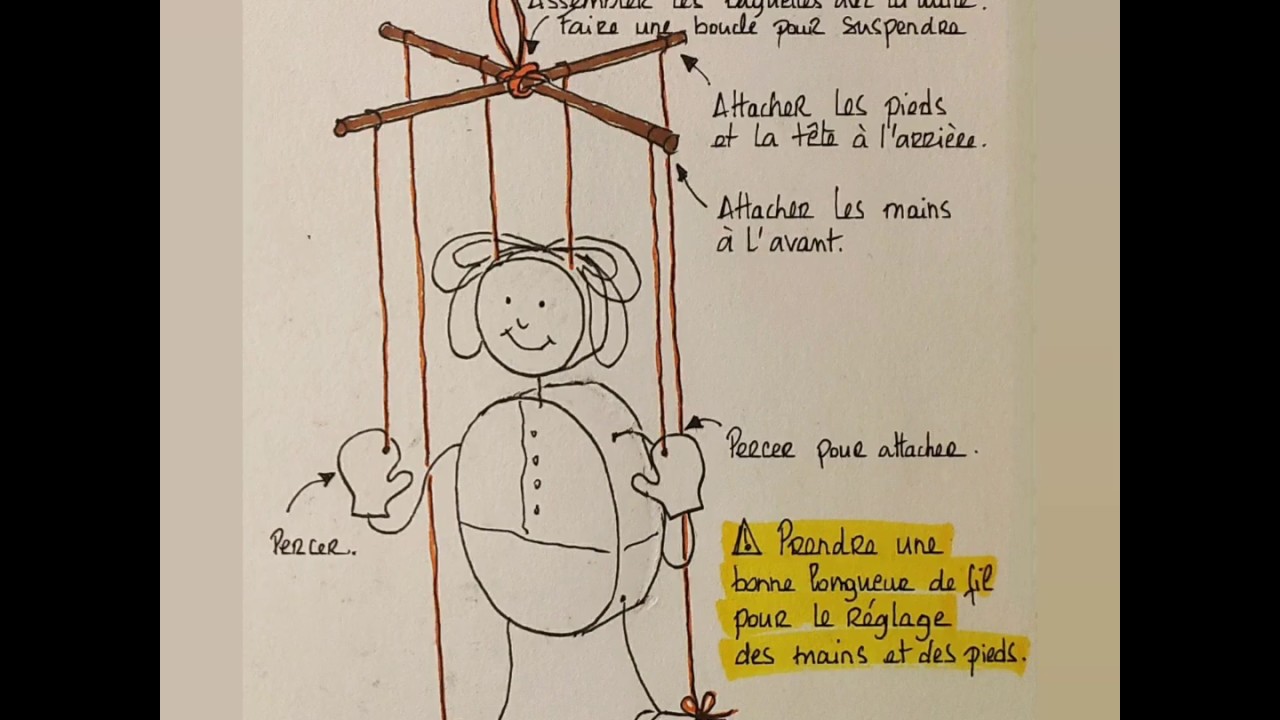 Assembler les baguettes avec la laine.
Faire une boucle pour suspendre
Attacher les pieds
et la tête à l'arrière.
Attacher les mains
à l'avant.
Percer pour attacher.
Percer.
⚠ Prendre une
bonne longueur de fil
pour le réglage
des mains et des pieds.